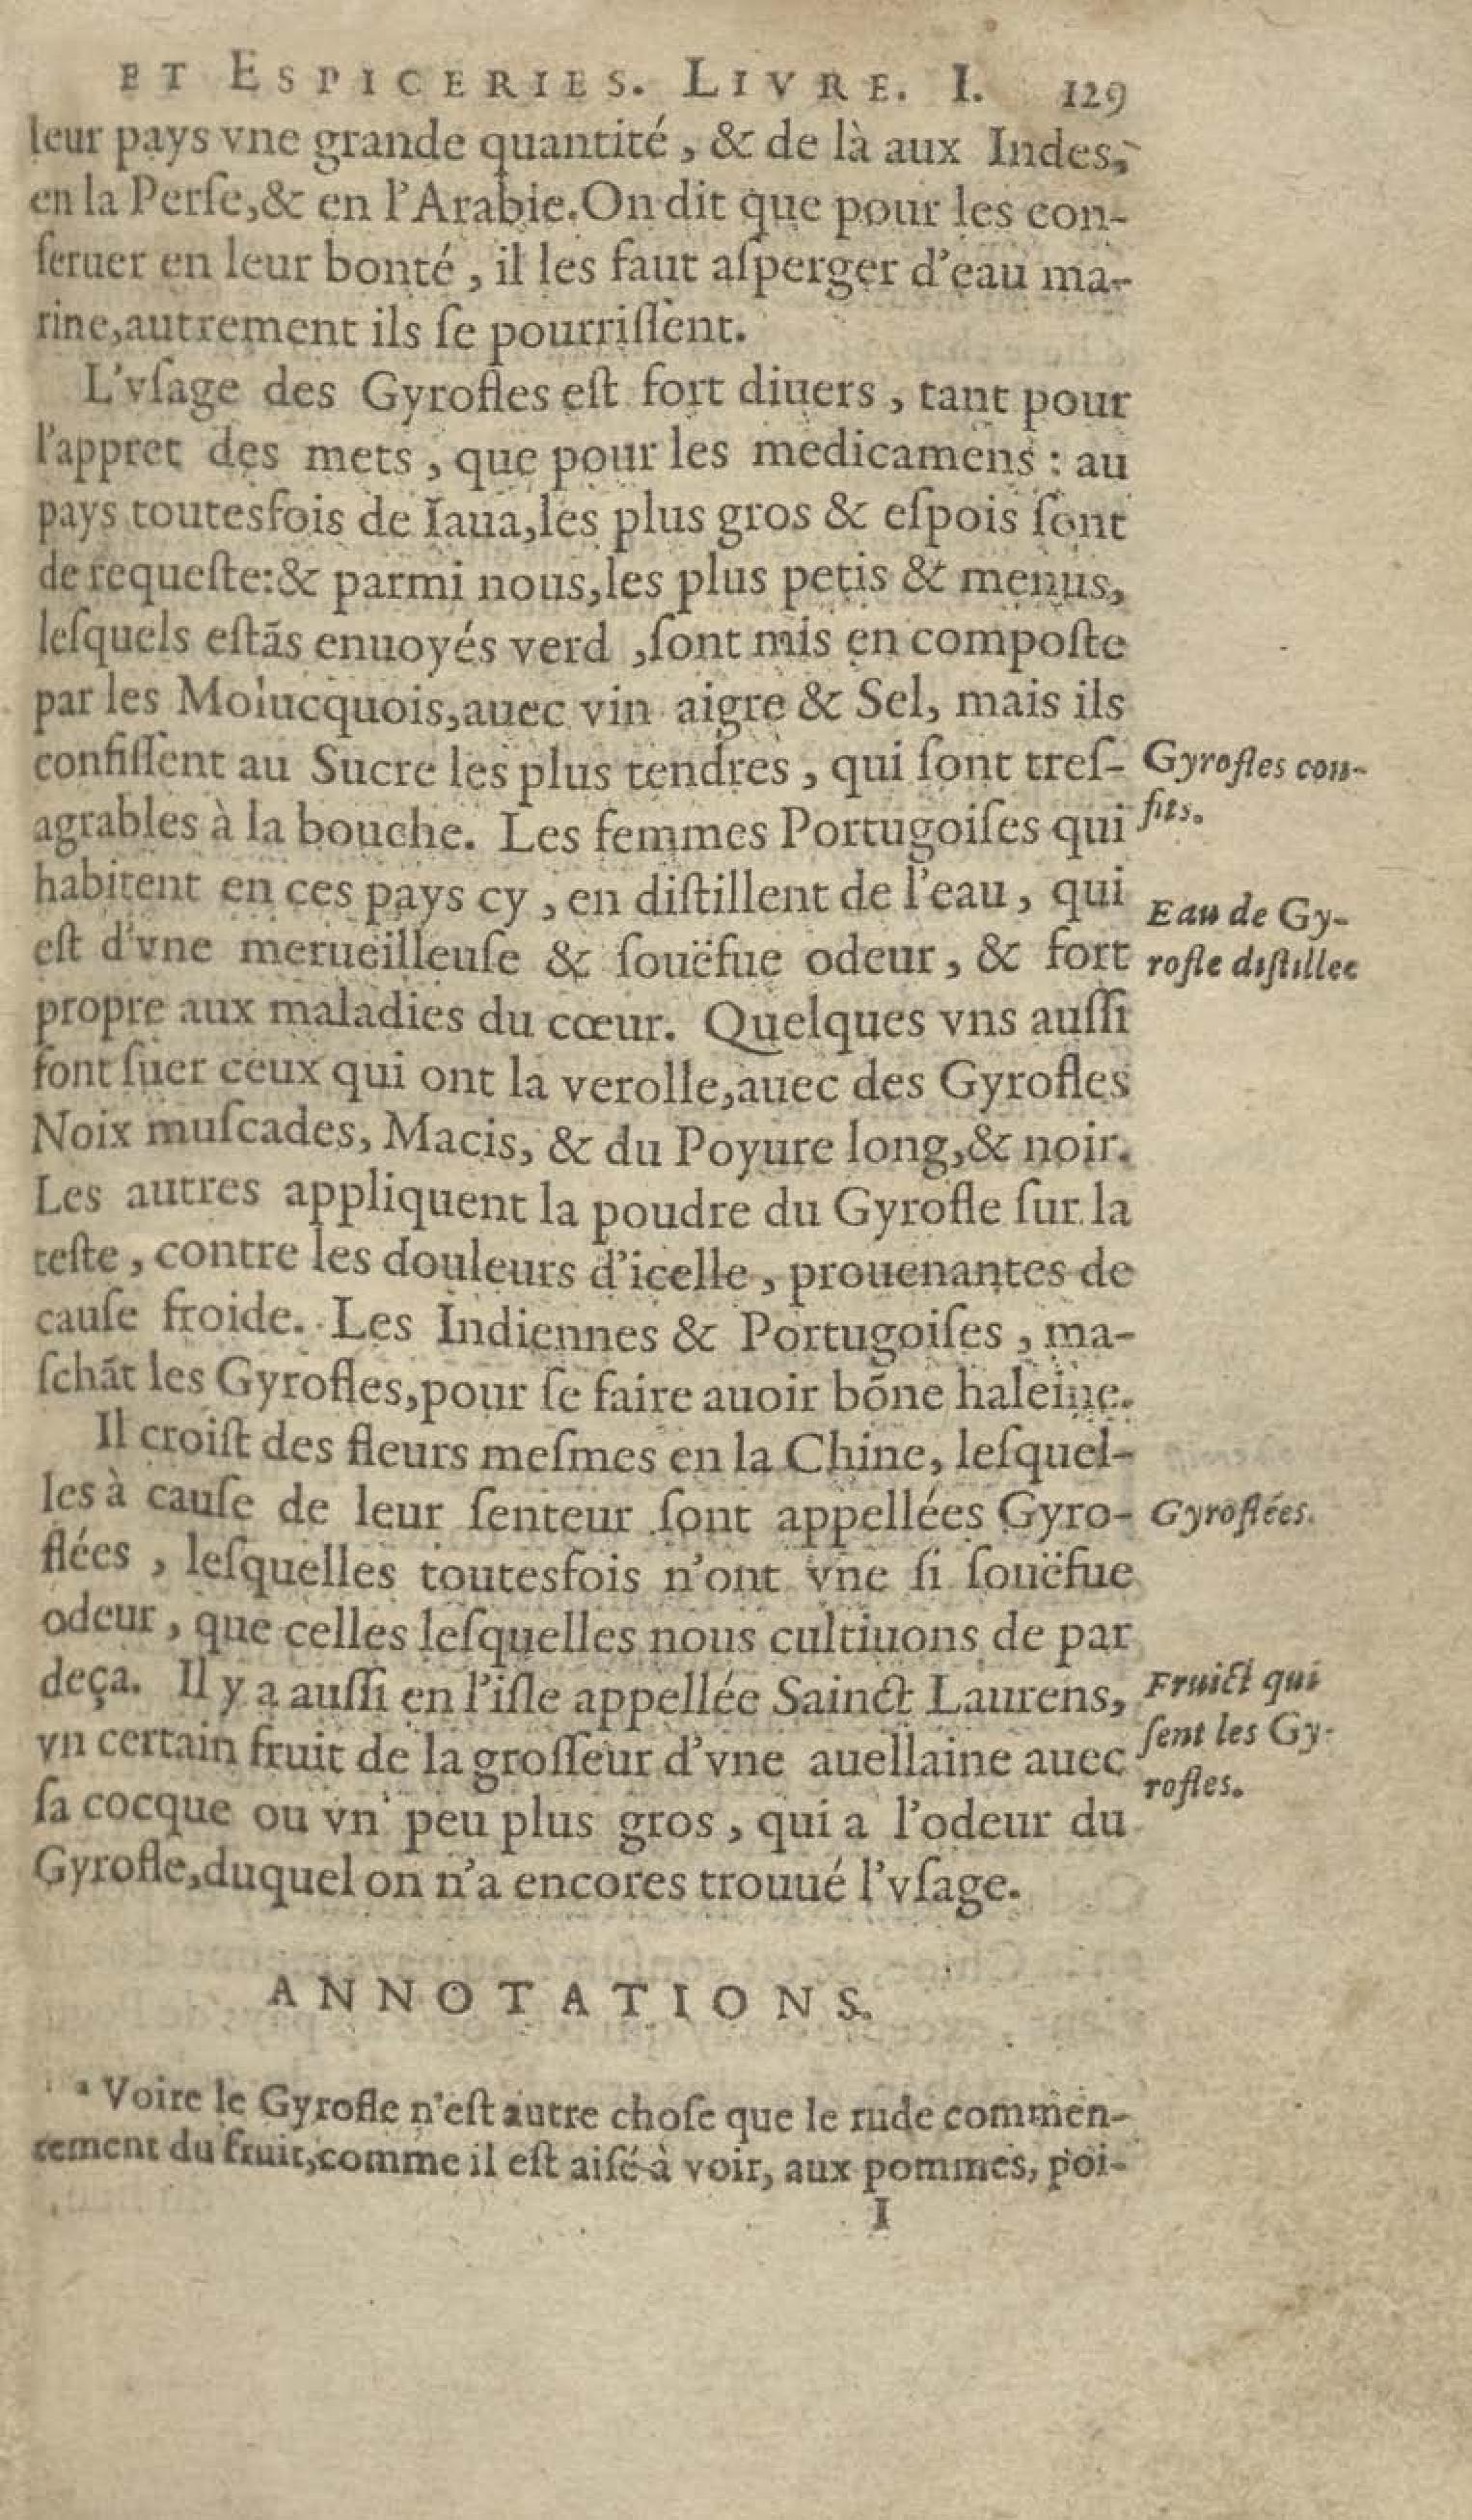 ET ESPICERIES. LIVRE. I. 129
leur pays vne grande quantité, & de là aux Indes,
en la Perſe,& en l'Arabie.On dit que pour les con-
ſeruer en leur bonté, il les faut aſperger d'eau ma-
rine,autrement ils ſe pourriſſent.
L'vſage des Gyrofles eſt fort diuers, tant pour
l'appret des mets, que pour les medicamens : au
pays toutesfois de Iaua,les plus gros & eſpois ſont
de requeſte:& parmi nous,les plus petis & menus,
leſquels eſtãs enuoyés verd ,ſont mis en compoſte
par les Molucquois,auec vin aigre & Sel, mais ils
confiſſent au Sucre les plus tendres, qui ſont treſ-
Gyrofles con-
fits.
agrables à la bouche. Les femmes Portugoiſes qui
habitent en ces pays cy, en diſtillent de l'eau, qui
Eau de Gy-
rofle diſtillee
eſt d'vne merueilleuſe & ſouëfue odeur, & fort
propre aux maladies du cœur. Quelques vns auſſi
font ſuer ceux qui ont la verolle,auec des Gyrofles
Noix muſcades, Macis, & du Poyure long,& noir.
Les autres appliquent la poudre du Gyrofle ſur la
teſte, contre les douleurs d'icelle, prouenantes de
cauſe froide. Les Indiennes & Portugoiſes, ma-
ſchãt les Gyrofles,pour ſe faire auoir bõne haleine.
Il croiſt des fleurs meſmes en la Chine, leſquel-
les à cauſe de leur ſenteur ſont appellées Gyro-
Gyroflées.
flées, leſquelles toutesfois n'ont vne ſi ſouëfue
odeur, que celles leſquelles nous cultiuons de par
deça. Il y a auſſi en l'iſle appellée Sainct Laurens,
Fruict qui
ſent les Gy-
rofles.
vn certain fruit de la groſſeur d'vne auellaine auec
ſa cocque ou vn peu plus gros, qui a l'odeur du
Gyrofle,duquel on n'a encores trouué l'vſage.
ANNOTATIONS.
ª Voire le Gyrofle n'eſt autre choſe que le rude commen-
cement du fruit,comme il eſt aiſé à voir, aux pommes, poi-
I